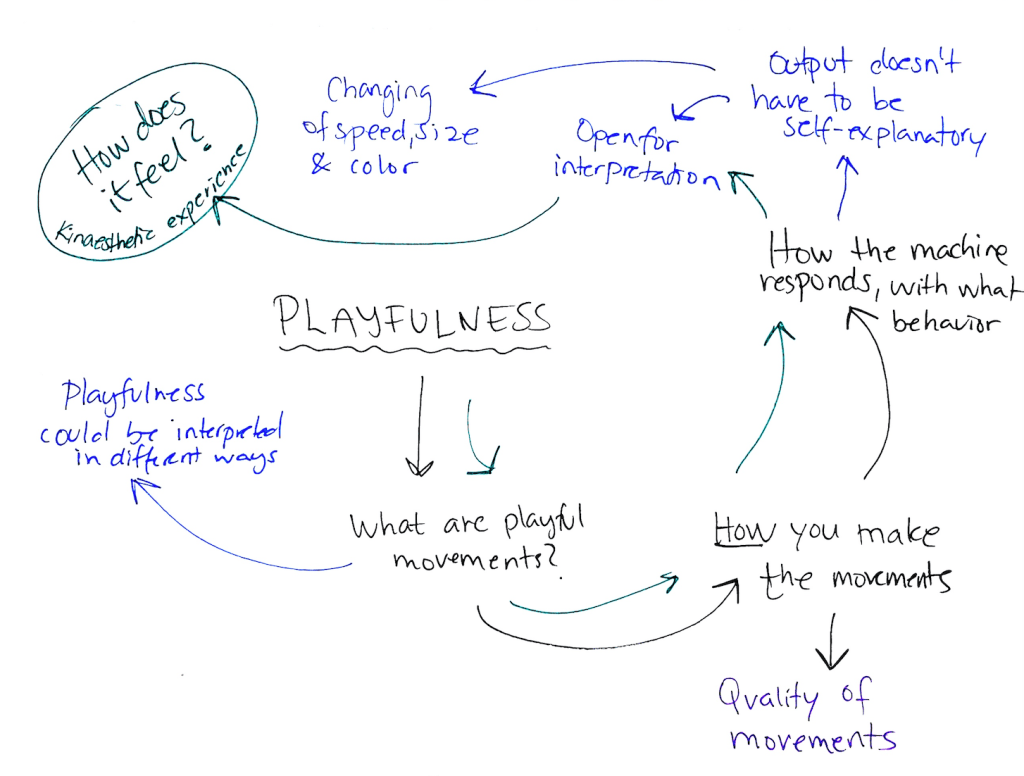 How does
it feel?
Kinaesthetic experience
Changing
of speed, size
& color
Open for
interpretation
Output doesn't
have to be
self-explanatory
How the machine
responds, with what
behavior
PLAYFULNESS
Playfulness
could be interpreted
in different ways
What are playful
movements?
How you make
the movements
Quality of
movements